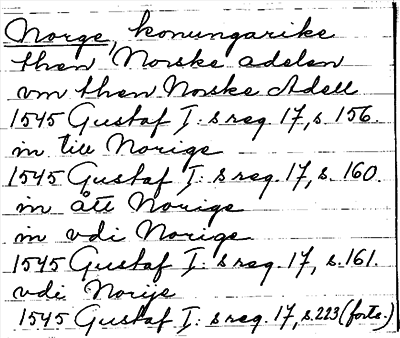 Norge, konungarike
then Norske adelen
vm then Norske Adell
1545 Gustaf I: s reg. 17, s. 156.
in till Norige
1545 Gustaf I: s reg. 17, s. 160.
in ått Norige
in vdi Norige
1545 Gustaf I: s reg. 17, s. 161.
vdi Norije
1545 Gustaf I: s reg. 17, s. 223 (forts.)